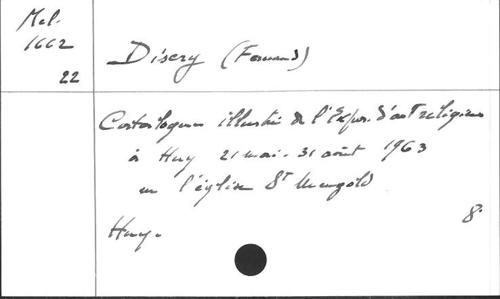 Mél.
1662
22
Discry (Fernand)
Catalogue illustré de l'Expos. d'art religieux
à Huy 21 mai - 31 août 1963
en l'église St Mengold
Huy. 8°